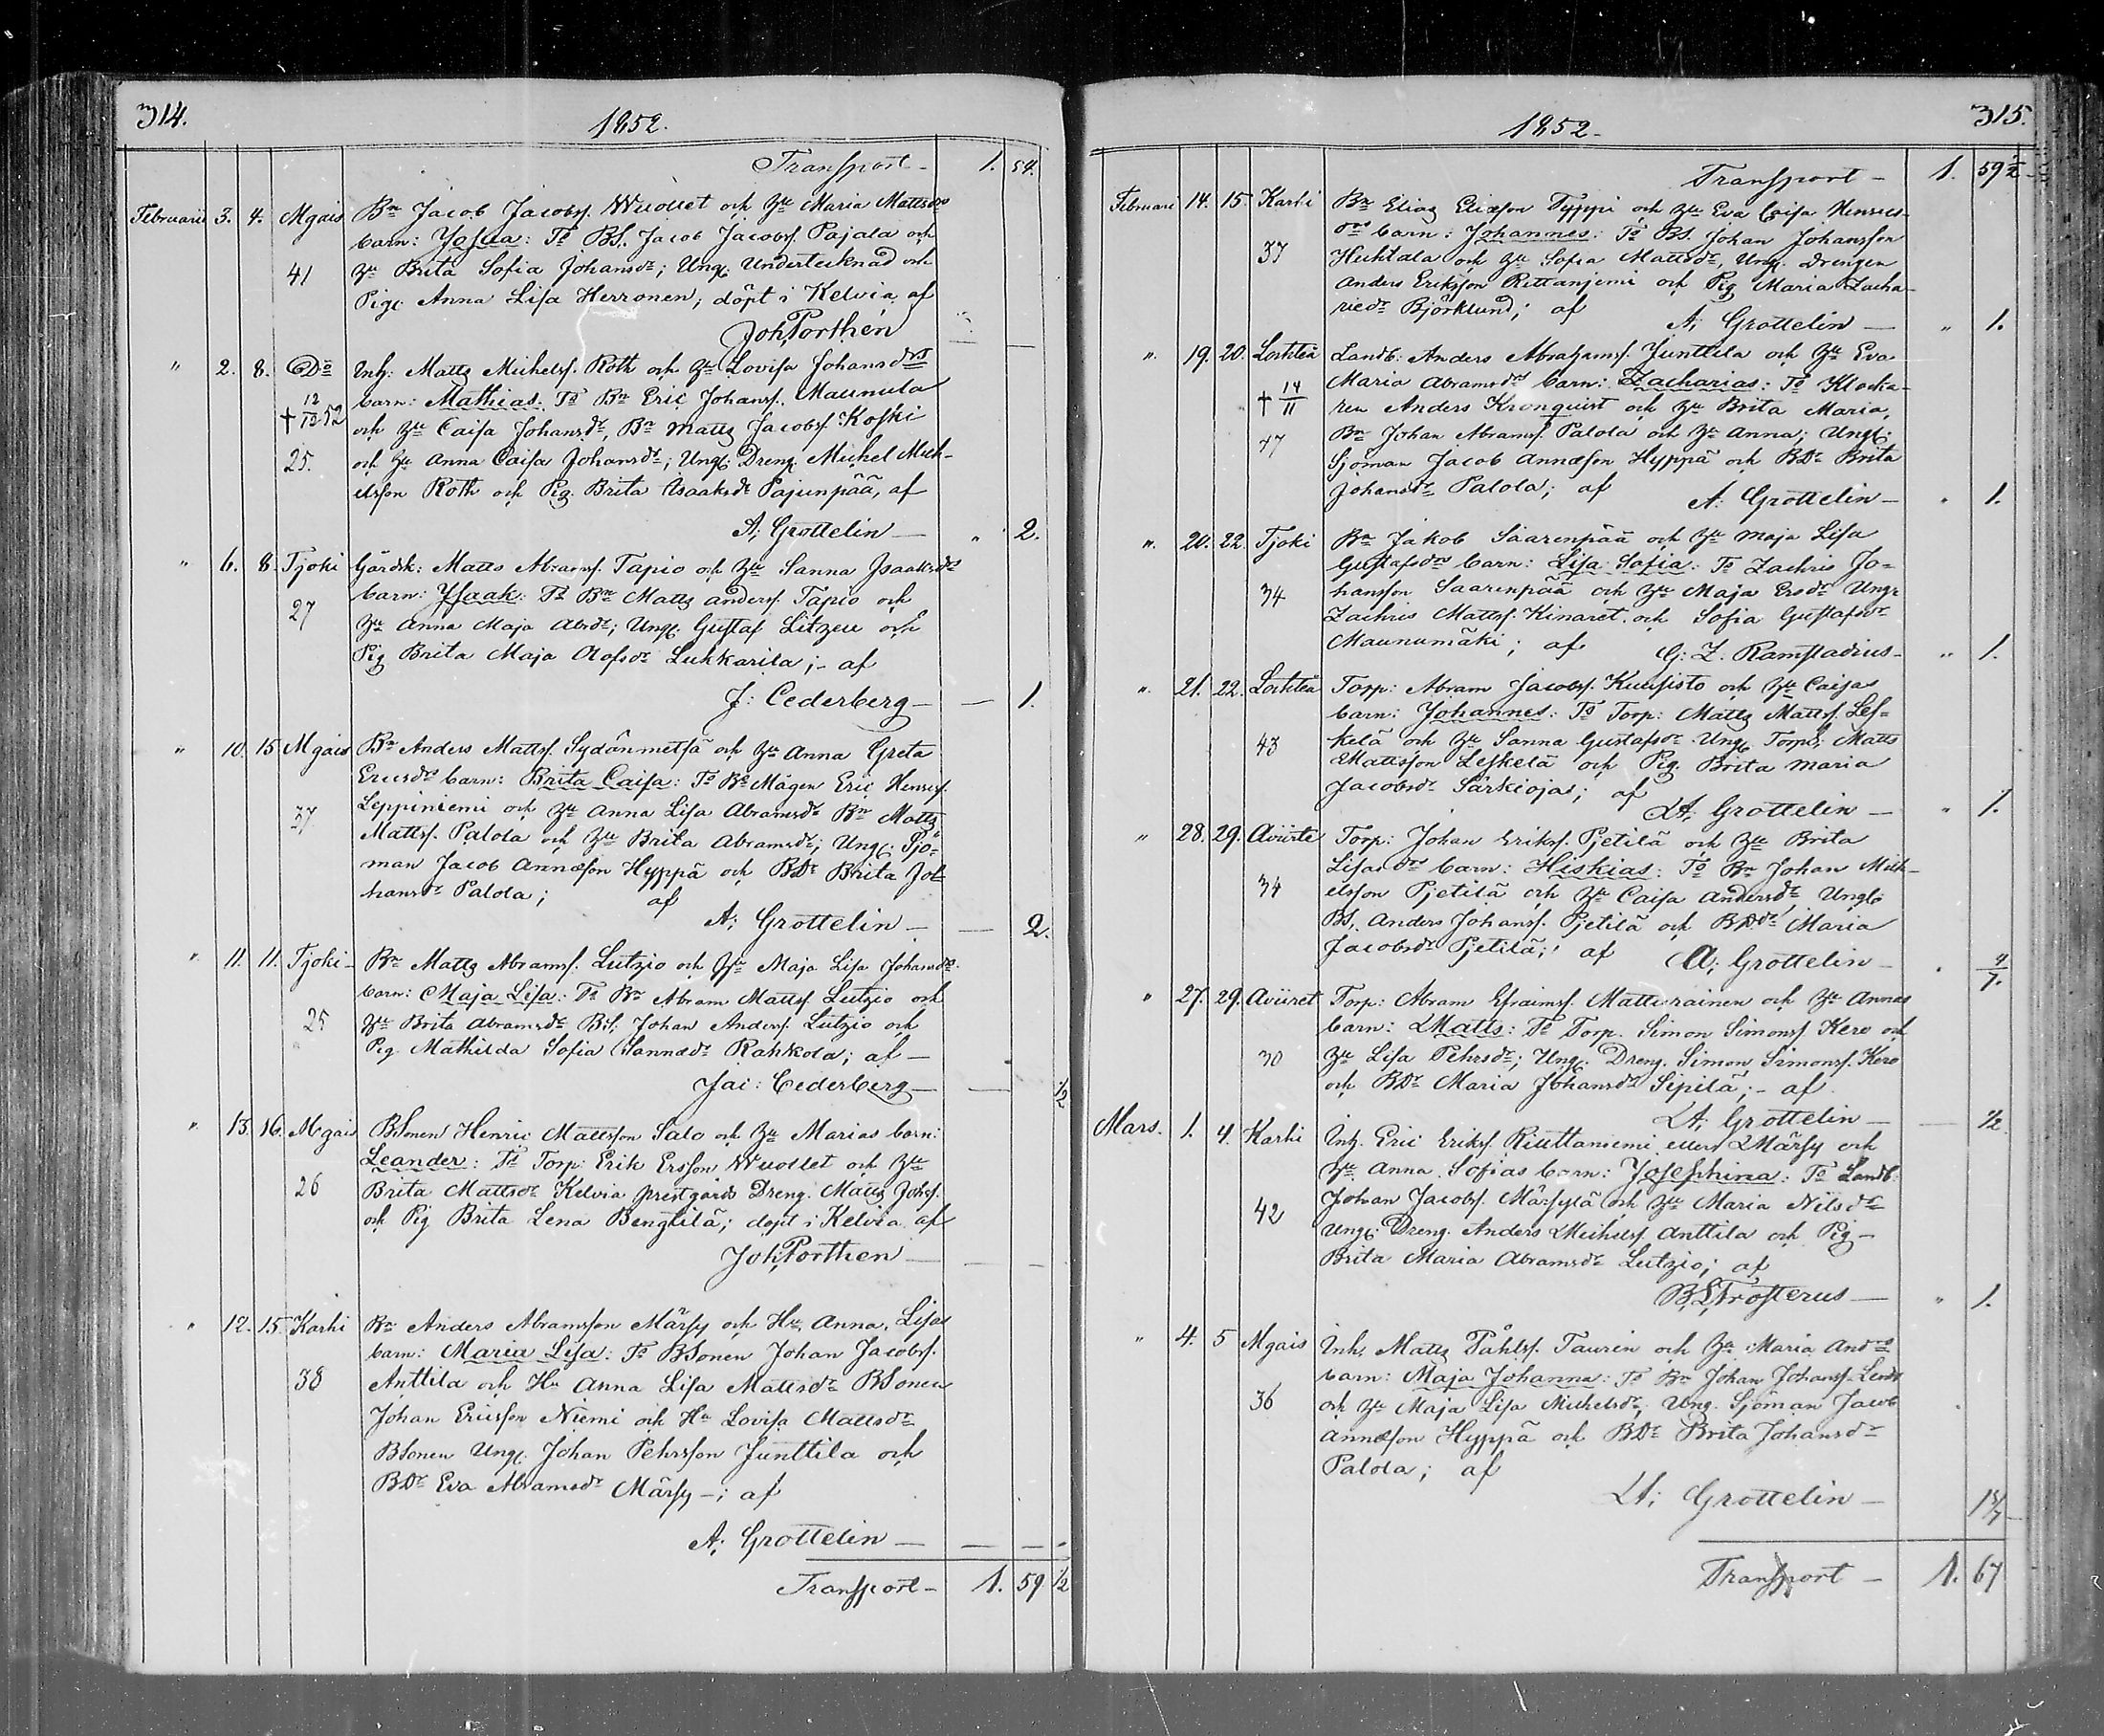 314.
1852.
Transport - 1. 54.
Februarii 3. 4. Mgais Bn Jacob Jacobsf. Wuollet och Hu Maria Mattsdrs
barn: Josua: Ts BS. Jacob Jacobsf. Pajala och
41 Hu Brita Sofia Johansdr; Ung. Undertecknad och
Pig. Anna Lisa Herronen, döpt i Kelviä, af
Joh. Porthén
" 2. 8. Do Inh: Matts Michelsf. Roth och Hu Lovisa Johansdrs
† 12/12 52 barn: Mathias: Ts Bn Eric Johansf. Maunula
och Hu Caisa Johansdr, Bn Matts Jacobsf. Koski
25. och Hu Anna Caisa Johansdr; Ung: Dreng. Michel Mich-
elsson Roth och Pig. Brita Isaaksdr Pajunpää, af
A; Grottelin - " 2.
" 6. 8. Tjoki Gårdsk: Matts Abramsf. Tapio och Hu Sanna Isaaksdrs
barn: Ysaak: Ts Bn Matts Andersf. Tapio och
27 Hu Anna Maja Abrdr; Ung. Gustaf Litzen och
Pig Brita Maja Olofsdr Lukkarila; - af
J: Cederberg - — 1.
" 10. 15 Mgais Bn Anders Mattsf. Sydänmetsä och Hu Anna Greta
Ericsdrs barn: Brita Caisa: Ts Bs Mågen Eric Henrsf.
37 Leppiniemi och Hu Anna Lisa Abramsdr Bn Matts
Mattsf. Palola och Hu Brita Abramsdr; Ung. Sjö-
man Jacob Annæson Hyppä och BDr Brita Jo-
hansdr Palola; af
A; Grottelin - — 2.
" 11. 11. Tjoki - Bn Matts Abramsf. Lutzio och Hu Maja Lisa Johansdrs
barn: Maja Lisa: Ts Bn Abram Mattsf. Lutzio och
25 Hu Brita Abramsdr BS. Johan Andersf. Lutzio och
Pig. Mathilda Sofia Sannædr Rahkola; af -
Jac: Cederberg - — 1/2
" 13. 16. Mgais BSonen Henric Mattsson Salo och Hu Marias barn:
Leander: Ts Torp: Erik Ersson Wuollet och Hu
26 Brita Mattsdr Kelvia prestgårds Dreng. Matts Johsf.
och Pig Brita Lena Bengtilä; döpt i Kelvia af
Joh. Porthen -
" 12. 15. Karhi Bn Anders Abramsson Märsy och Hu Anna Lisas
barn: Maria Lisa: Ts BSonen Johan Jacobsf.
38 Anttila och Hu Anna Lisa Mattsdr BSonen
Johan Ericsson Niemi och Hu Lovisa Mattsdr
BSonen Ung. Johan Pehrsson Junttila och
BDr Eva Abramsdr Märsy -; af
A; Grottelin -
Transport - 1. 59 1/2
315.
1852.
Transport - 1. 59 1/2
Februari 14. 15. Karhi Bn Elias Ericson Typpi och Hu Eva Caisa Henrics-
drs barn: Johannes: Ts BS. Johan Johansson
37 Huhtala och Hu Sofia Mattsdr, Ung. Drengen
Anders Eriksson Rittaniemi och Pig Maria Zacha-
riedr Björklund; af
A; Grottelin - " 1.
". 19. 20. Lochteå Landb: Anders Abrahamsf. Junttila och Hu Eva
† 14/11 Maria Abramsdrs barn: Zacharias: Ts Klocka-
ren Anders Kronquist och Hu Brita Maria,
47 Bn Johan Abramsf. Palola och Hu Anna; Ung:
Sjöman Jacob Annæson Hyppä och BDr Brita
Johansdr Palola; af A: Grottelin - " 1.
". 20. 22. Tjoki Bn Jakob Saarenpää och Hu Maja Lisa
Gustafsdrs barn: Lisa Sofia: Ts Zachris Jo-
34 hansson Saarenpää och Hu Maja Ersdr Ung:
Zachris Mattsf. Kinaret och Sofia Gustafsdr
Maunumäki; af G: Z. Ramstadius - " 1.
". 21. 22. Lochteå Torp: Abram Jacobsf. Kuusisto och Hu Caisas
barn: Johannes: Ts Torp: Matts Mattsf. Les-
43 kelä och Hu Sanna Gustafsdr Ung: Torps; Matts
Mattsson Leskelä och Pig. Brita Maria
Jacobsdr Särkiojas; af
A; Grottelin - " 1.
" 28. 29. Aviirte Torp: Johan Eriksf. Pjetilä och Hu Brita
Lisasdrs barn: Hiskias: Ts Bn Johan Mich-
34 elsson Pjetilä och Hu Caisa Andersdr, Ung:
BS, Anders Johansf. Pjetilä och BDr Maria
Jacobsdr Pjetilä; af A; Grottelin -
" 27. 29. Aviiret Torp: Abram Efraimsf. Matturainen och Hu Annas
barn: Matts: Ts Torp. Simon Simonsf Kero och
30 Hu Lisa Pehrsdr; Ung. Dreng. Simon Simonsf. Kero
och BDr Maria Johansdr Sipilä; - af
A; Grottelin - — 1/2
Mars. 1. 4. Karhi Inh. Eric Eriksf. Riuttaniemi eller Märsy och
Hu Anna Sofias barn: Josephina: Ts Landb:
42 Johan Jacobsf. Märsylä och Hu Maria Nilsdr
Ung: Dreng. Anders Michelsf. Anttila och Pig -
Brita Maria Abramsdr Lutzio; af
B. S. Frosterus - " 1.
" 4. 5 Mgais Inh. Matts Påhlsf. Taurin och Hu Maria Andrs
barn: Maja Johanna: Ts Bn Johan Johansf.
36 och Hu Maja Lisa Michelsdr; Ung. Sjöman Jacob
Annæson Hyppä och BDr Brita Johansdr
Palola; af
A; Grottelin -
Transport - 1. 67